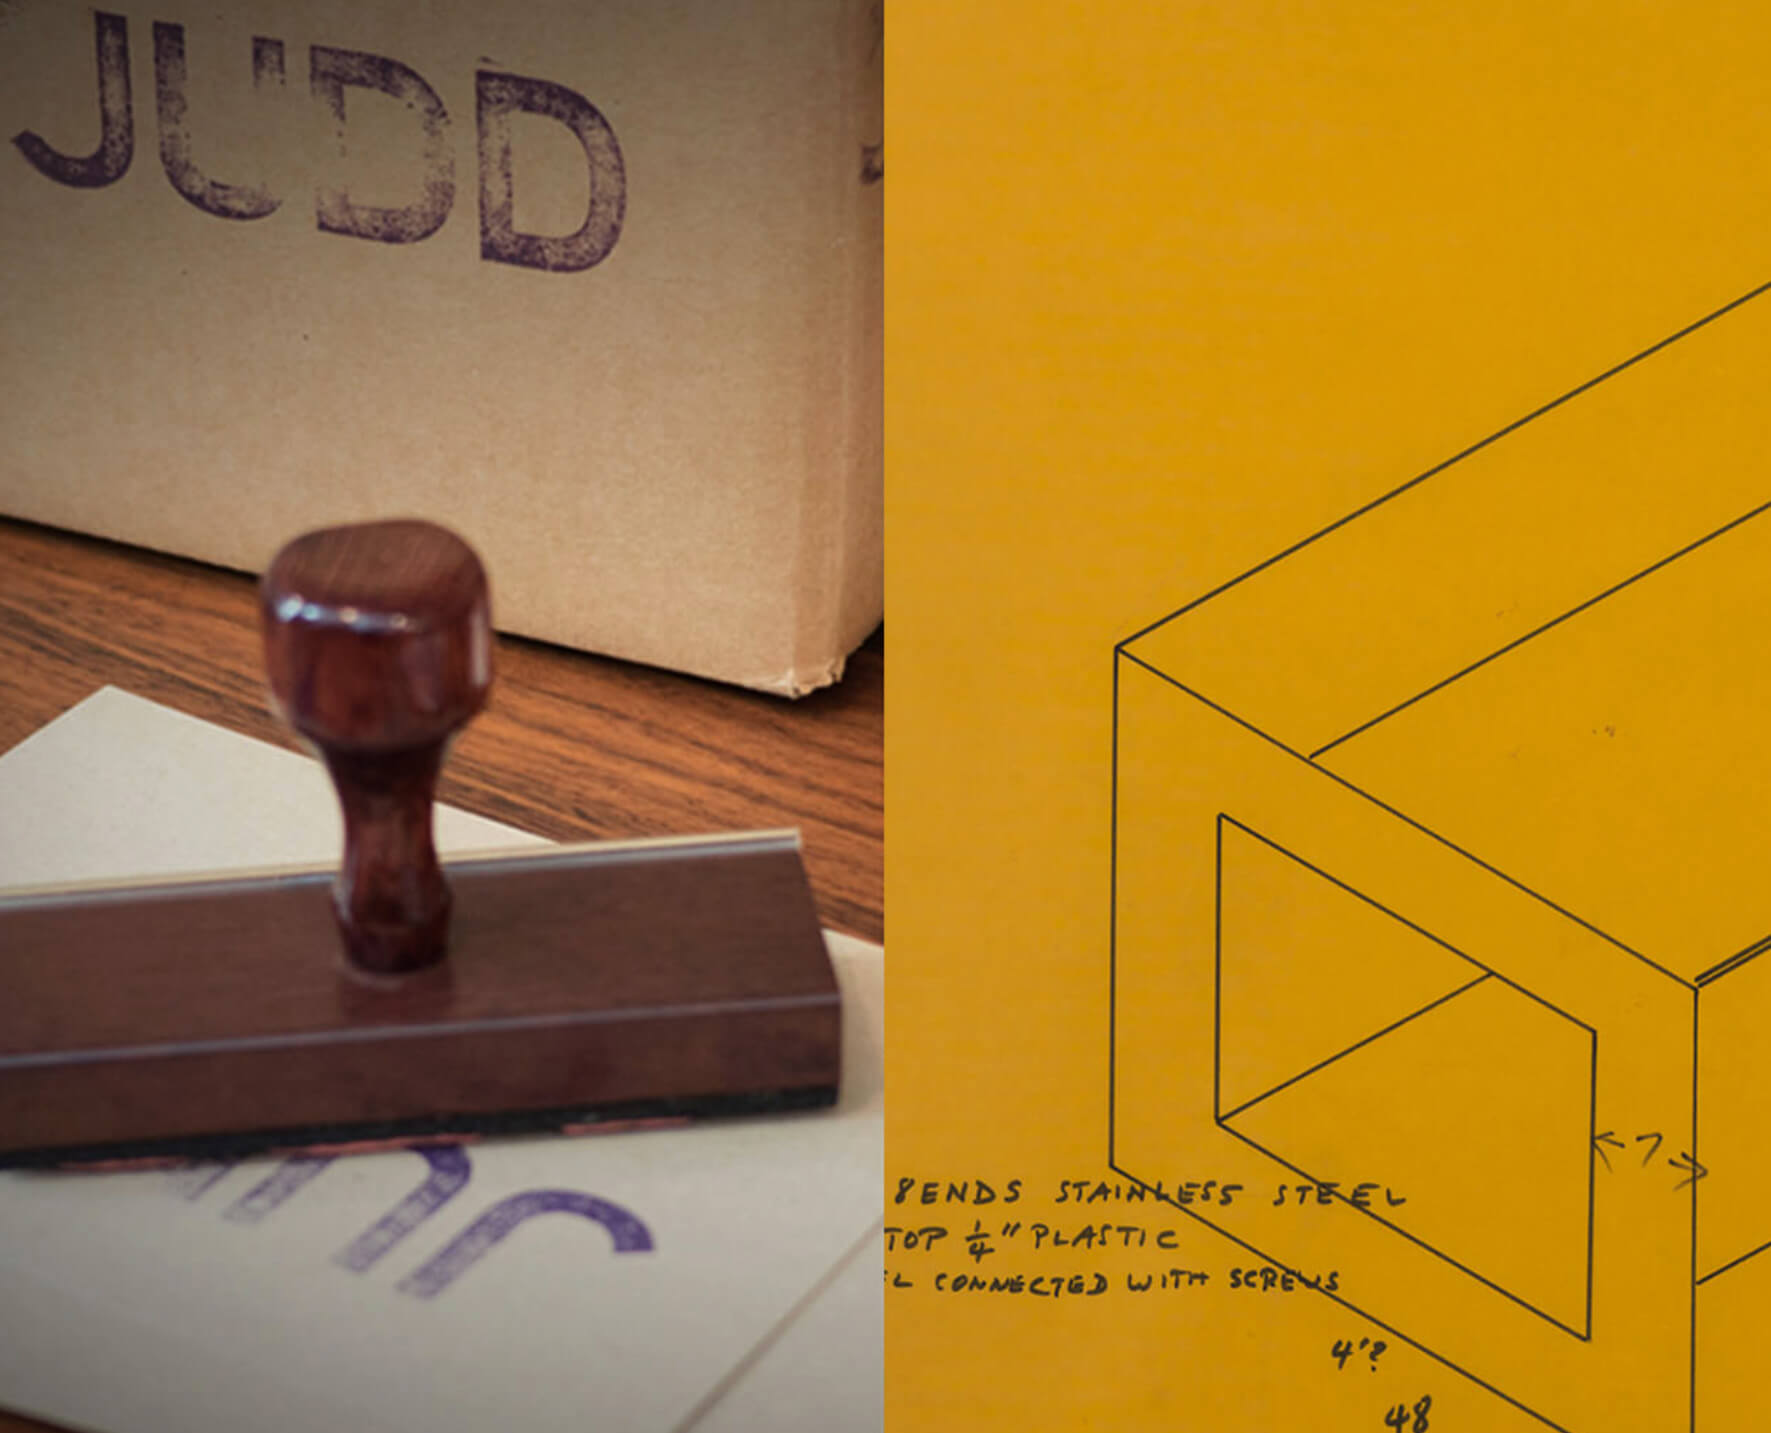 JUDD
8 ENDS STAINLESS STEEL
TOP 1/4" PLASTIC
CONNECTED WITH SCREWS
7
4'?
48